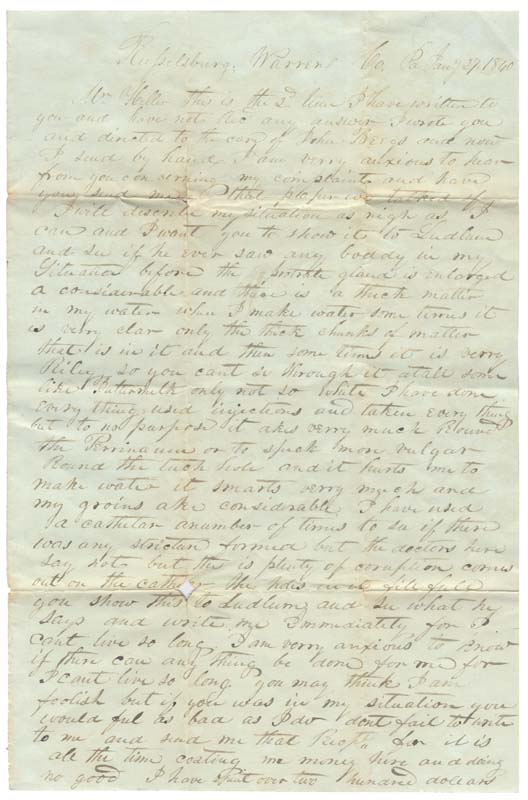 Russelsburg, Warren Co, Pa Jany 27, 1840
Mr Hiller this is the 2d line I have written to
you and have not rec any answer I wrote you
and directed to the care of John Beegs and now
I send by hand I am verry anxious to hear
from you concerning my complaint and have
you send me that we talked of
I will describe my situation as nigh as I
can and I want you to show it to Ludlum
and see if he ever saw any boddy in my
Situation before the prostrate gland is enlarged
a considerable and thare is a thick matter
in my water when I make water some times it
is very clar only the thick chunks of matter
that is in it and then some times it is verry
Riley so you cant se through it atall some
like Buttermilk only not so white I have done
Every thing used injections and taken every thing
but to no purpose it akes verry much Round
the Perrinaum or to speck more vulgar
Round the hole and it hurts me to
make water it smarts verry much and
my groins ake considerable I have used
a cathetar a number of times to see if there
was any stricture formed but the doctors here
say not but the is plenty of coruption comes
out on the the holes in it fill full
you show this to Ludlum and see what he
says and write me Emmadiatly for I
cant live so long I am verry anxious to know
if there can any thing be done for me for
I cant live so long you may think I am
foolish but if you was in my situation you
would ful as bad as I do dont fail to write
to me and send me that for it is
all the time costing me money here and doing
no good I have spent over two hundred dollars